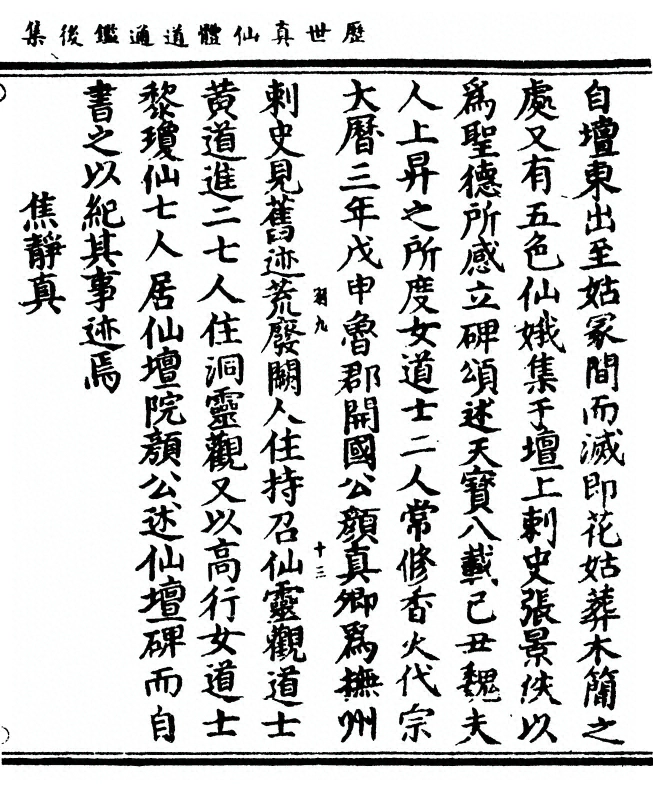 歷世真仙體道通鑑後集
自壇東出至姑冢間而滅即花姑葬木簡之
處又有五色仙娥集于壇上刺史張景佚以
爲聖德所感立碑頌述天寶八載己丑魏夫
人上昇之所度女道士二人常修香火代宗
大曆三年戊申魯郡開國公顏真卿爲撫州
羽九
十三
刺史見舊迹荒廢闕人住持召仙靈觀道士
黄道進二七人住洞靈觀又以高行女道士
黎瓊仙七人居仙壇院顏公述仙壇碑而自
書之以紀其事迹焉
焦靜真